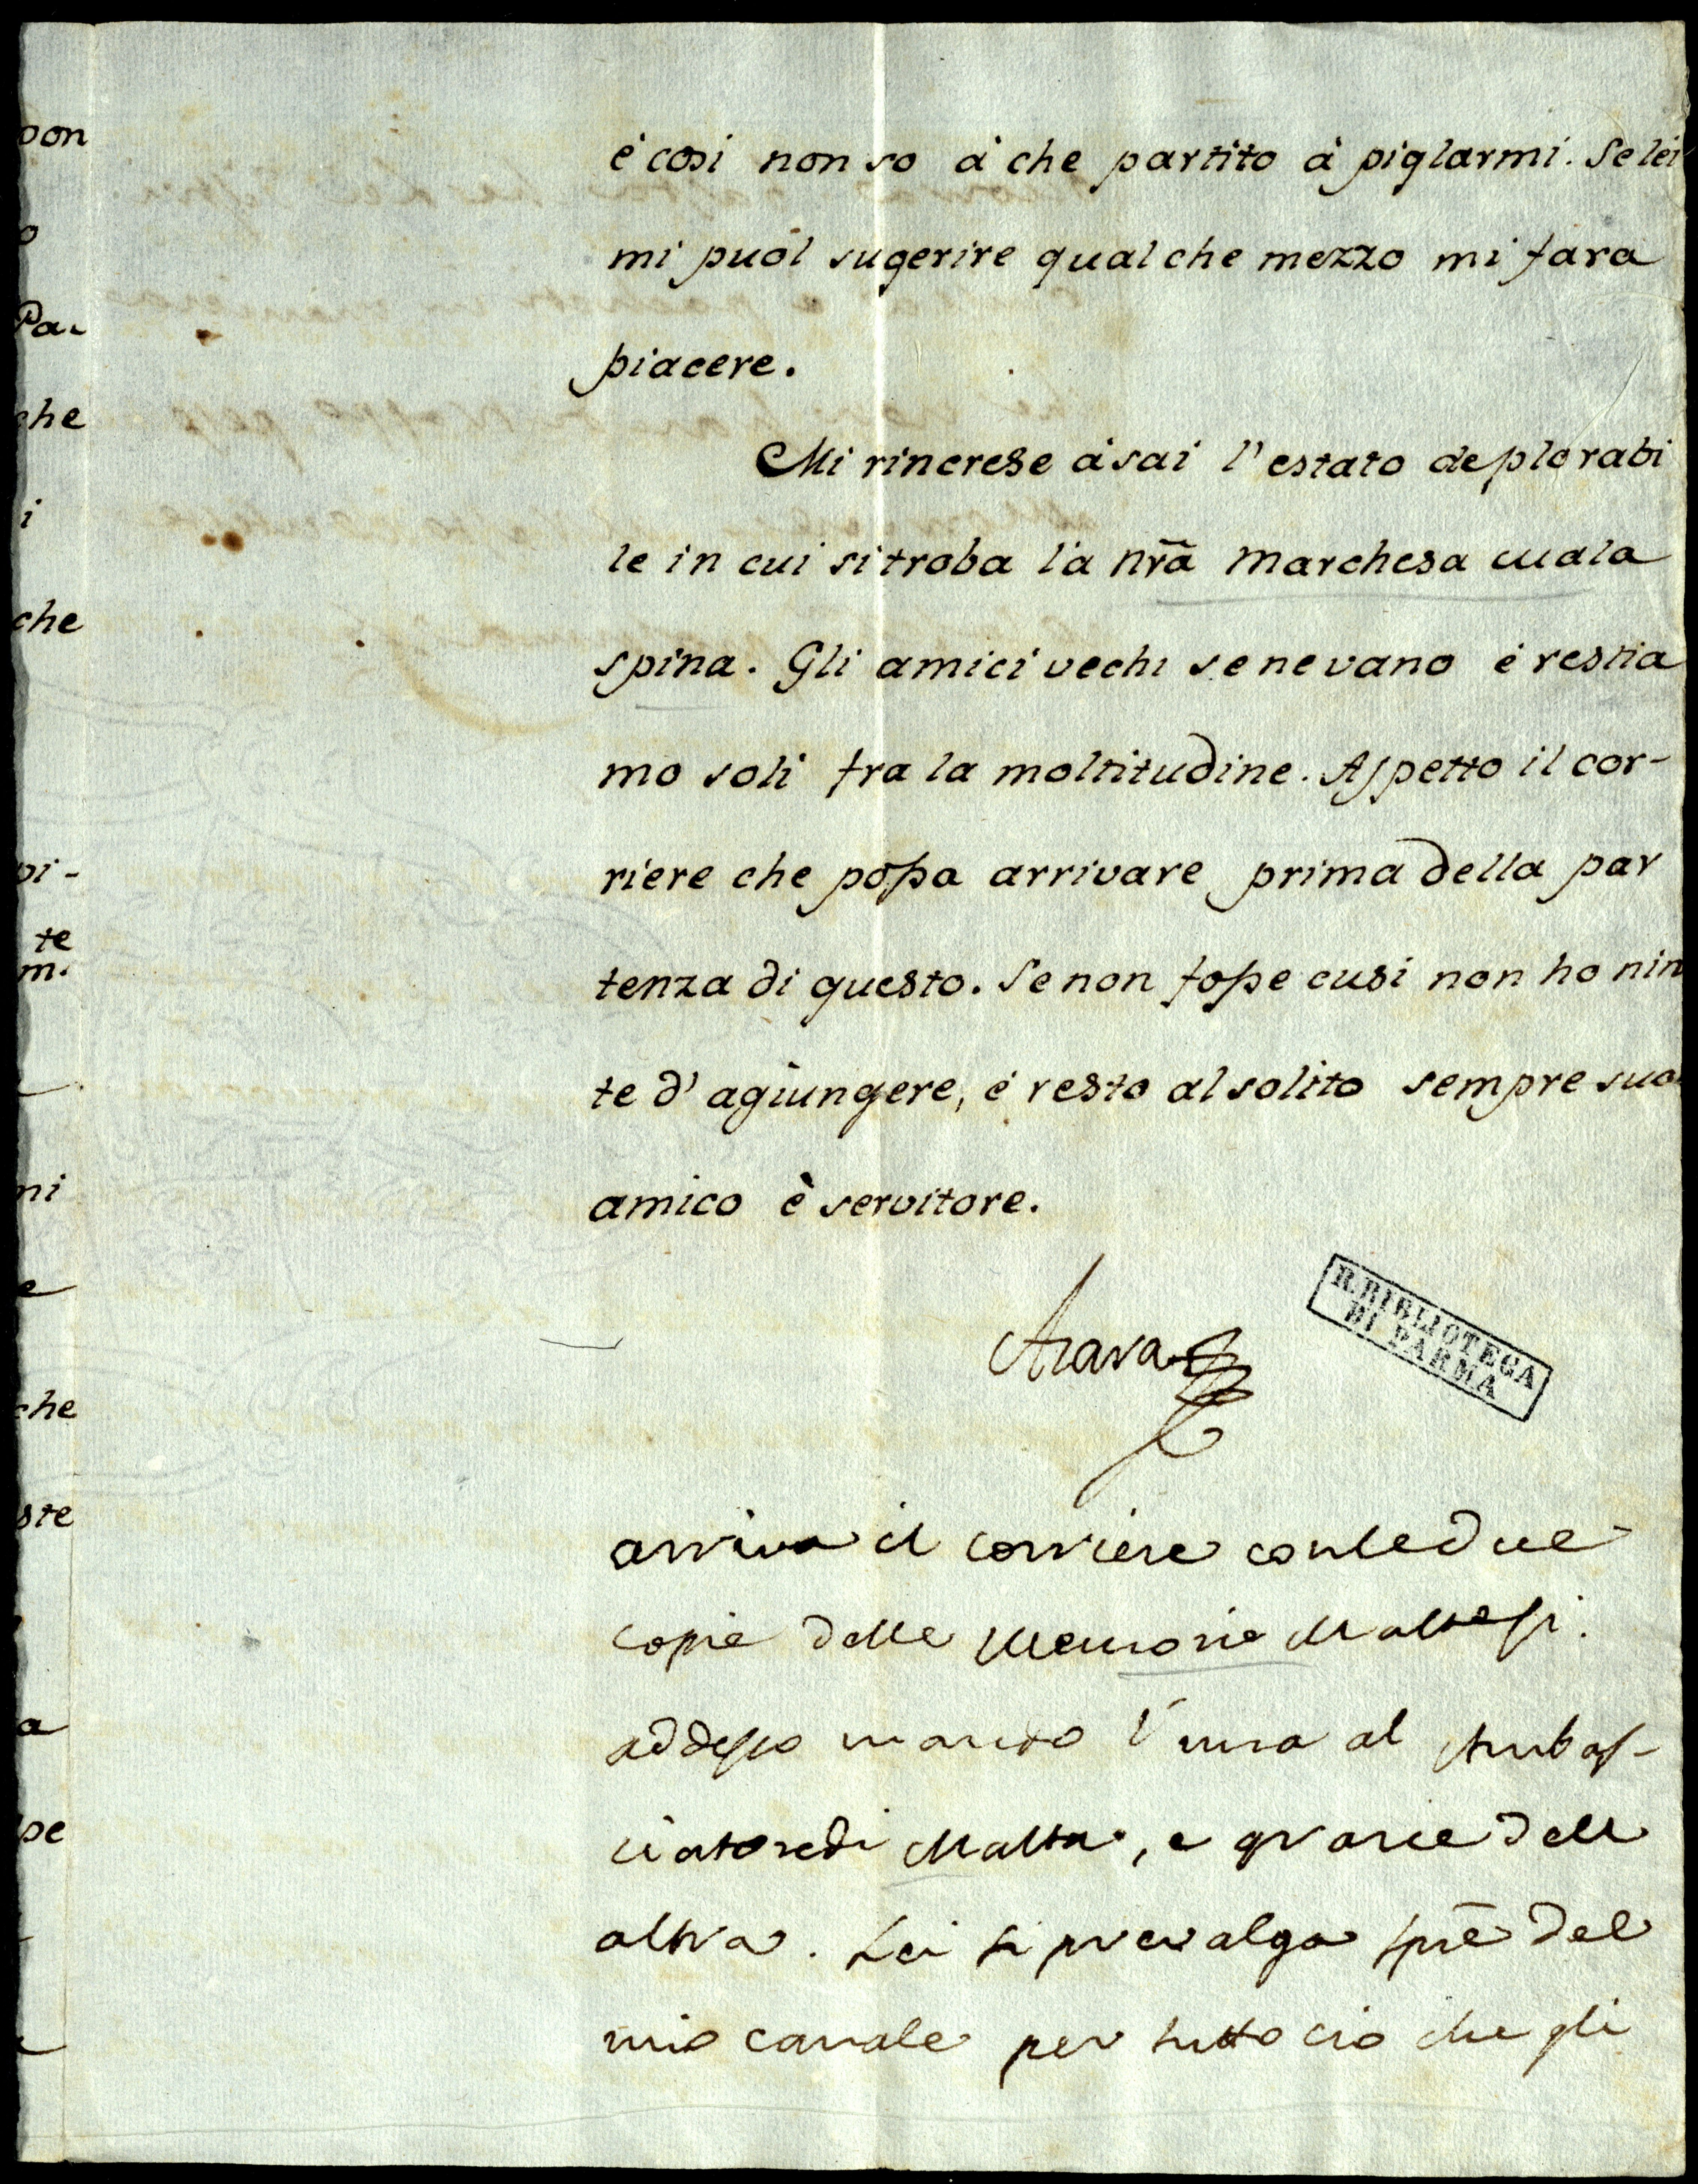 é cosi non so à che partito à piglarmi. Se lei
mi puol sugerire qualche mezzo mi fara
piacere.
Mi rincrese àsai l'estato deplorabi
le in cui si troba la nrã Marchesa Mala
spina. Gli amici vechi se ne vano é restia
mo soli fra la moltitudine. Aspetto il cor-
riere che possa arrivare prima della par
tenza di questo. Se non fosse cusi non ho nin
te d'agiungere, é resto al solito sempre suo
amico è servitore.
Azara
R. BIBLIOTECA
DI PARMA
arriva il corriere con le due
copie delle Memorie Maltesi.
addesso mando l'una al Ambas-
ciatore di Malta, e grazie dell
altra. Lei si prevalga sprẽ del
mio canale per tutto cio che gli
pon
o
Pa-
che
i
che
pi-
te
m.
ni
e
che
ste
a
pe